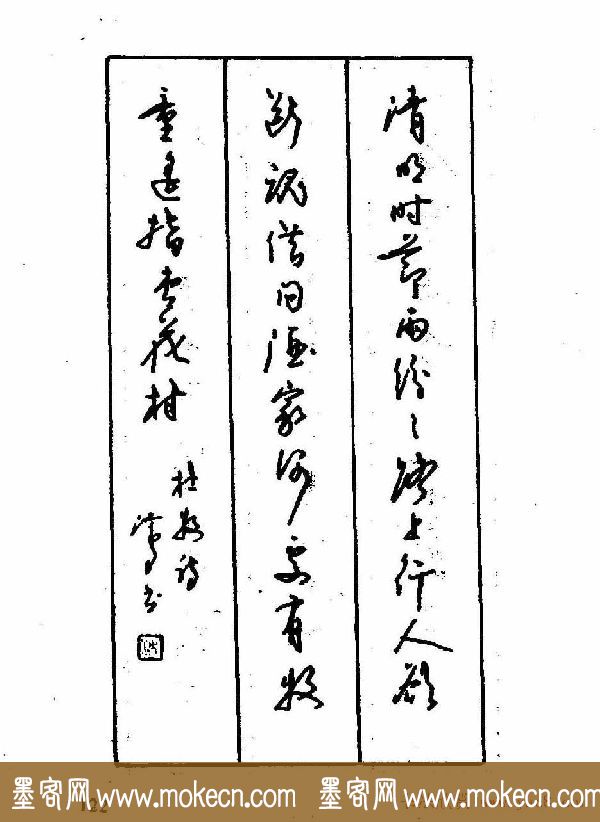 清明时节雨纷々路上行人欲
断魂借问酒家何处有牧
童遥指杏花村
杜牧诗
书
墨客网 www.mokecn.com 墨客网 www.mokecn.com
122